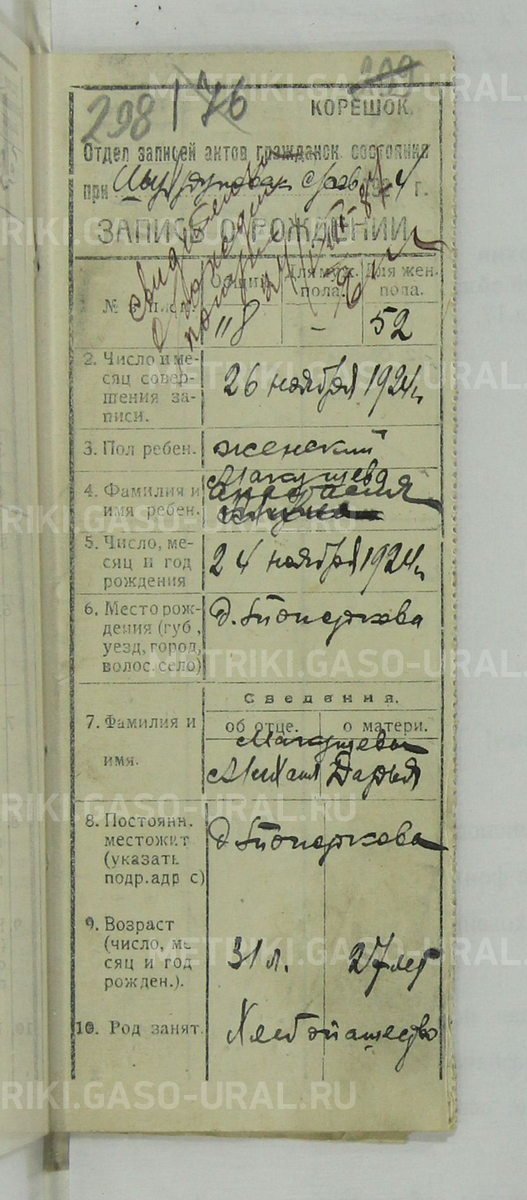 298
176
299
КОРЕШОК.
Отдел записей актов гражданск. состояния
при 1924 г.
ЗАПИСЬ О РОЖДЕНИИ
Общий Для муж. пола. Для жен. пола.
118 - 52
2. Число и месяц совершения записи.
26 ноября 1924 г.
3. Пол ребен. женский
4. Фамилия и имя ребен.
Макушева
Анастасия
5. Число, месяц и год рождения
24 ноября 1924 г.
6. Место рождения (губ., уезд, город, волос. село)
д. Топоркова
Сведения.
7. Фамилия и имя.
об отце. о матери.
Макушевы
Михаил Дарья
8. Постоянн. местожит (указать подр. адр с)
д. Топоркова
9. Возраст (число, месяц и год рожден.).
31 л. 27 лет
10. Род занят. Хлебопашество
METRIKI.GASO-URAL.RU